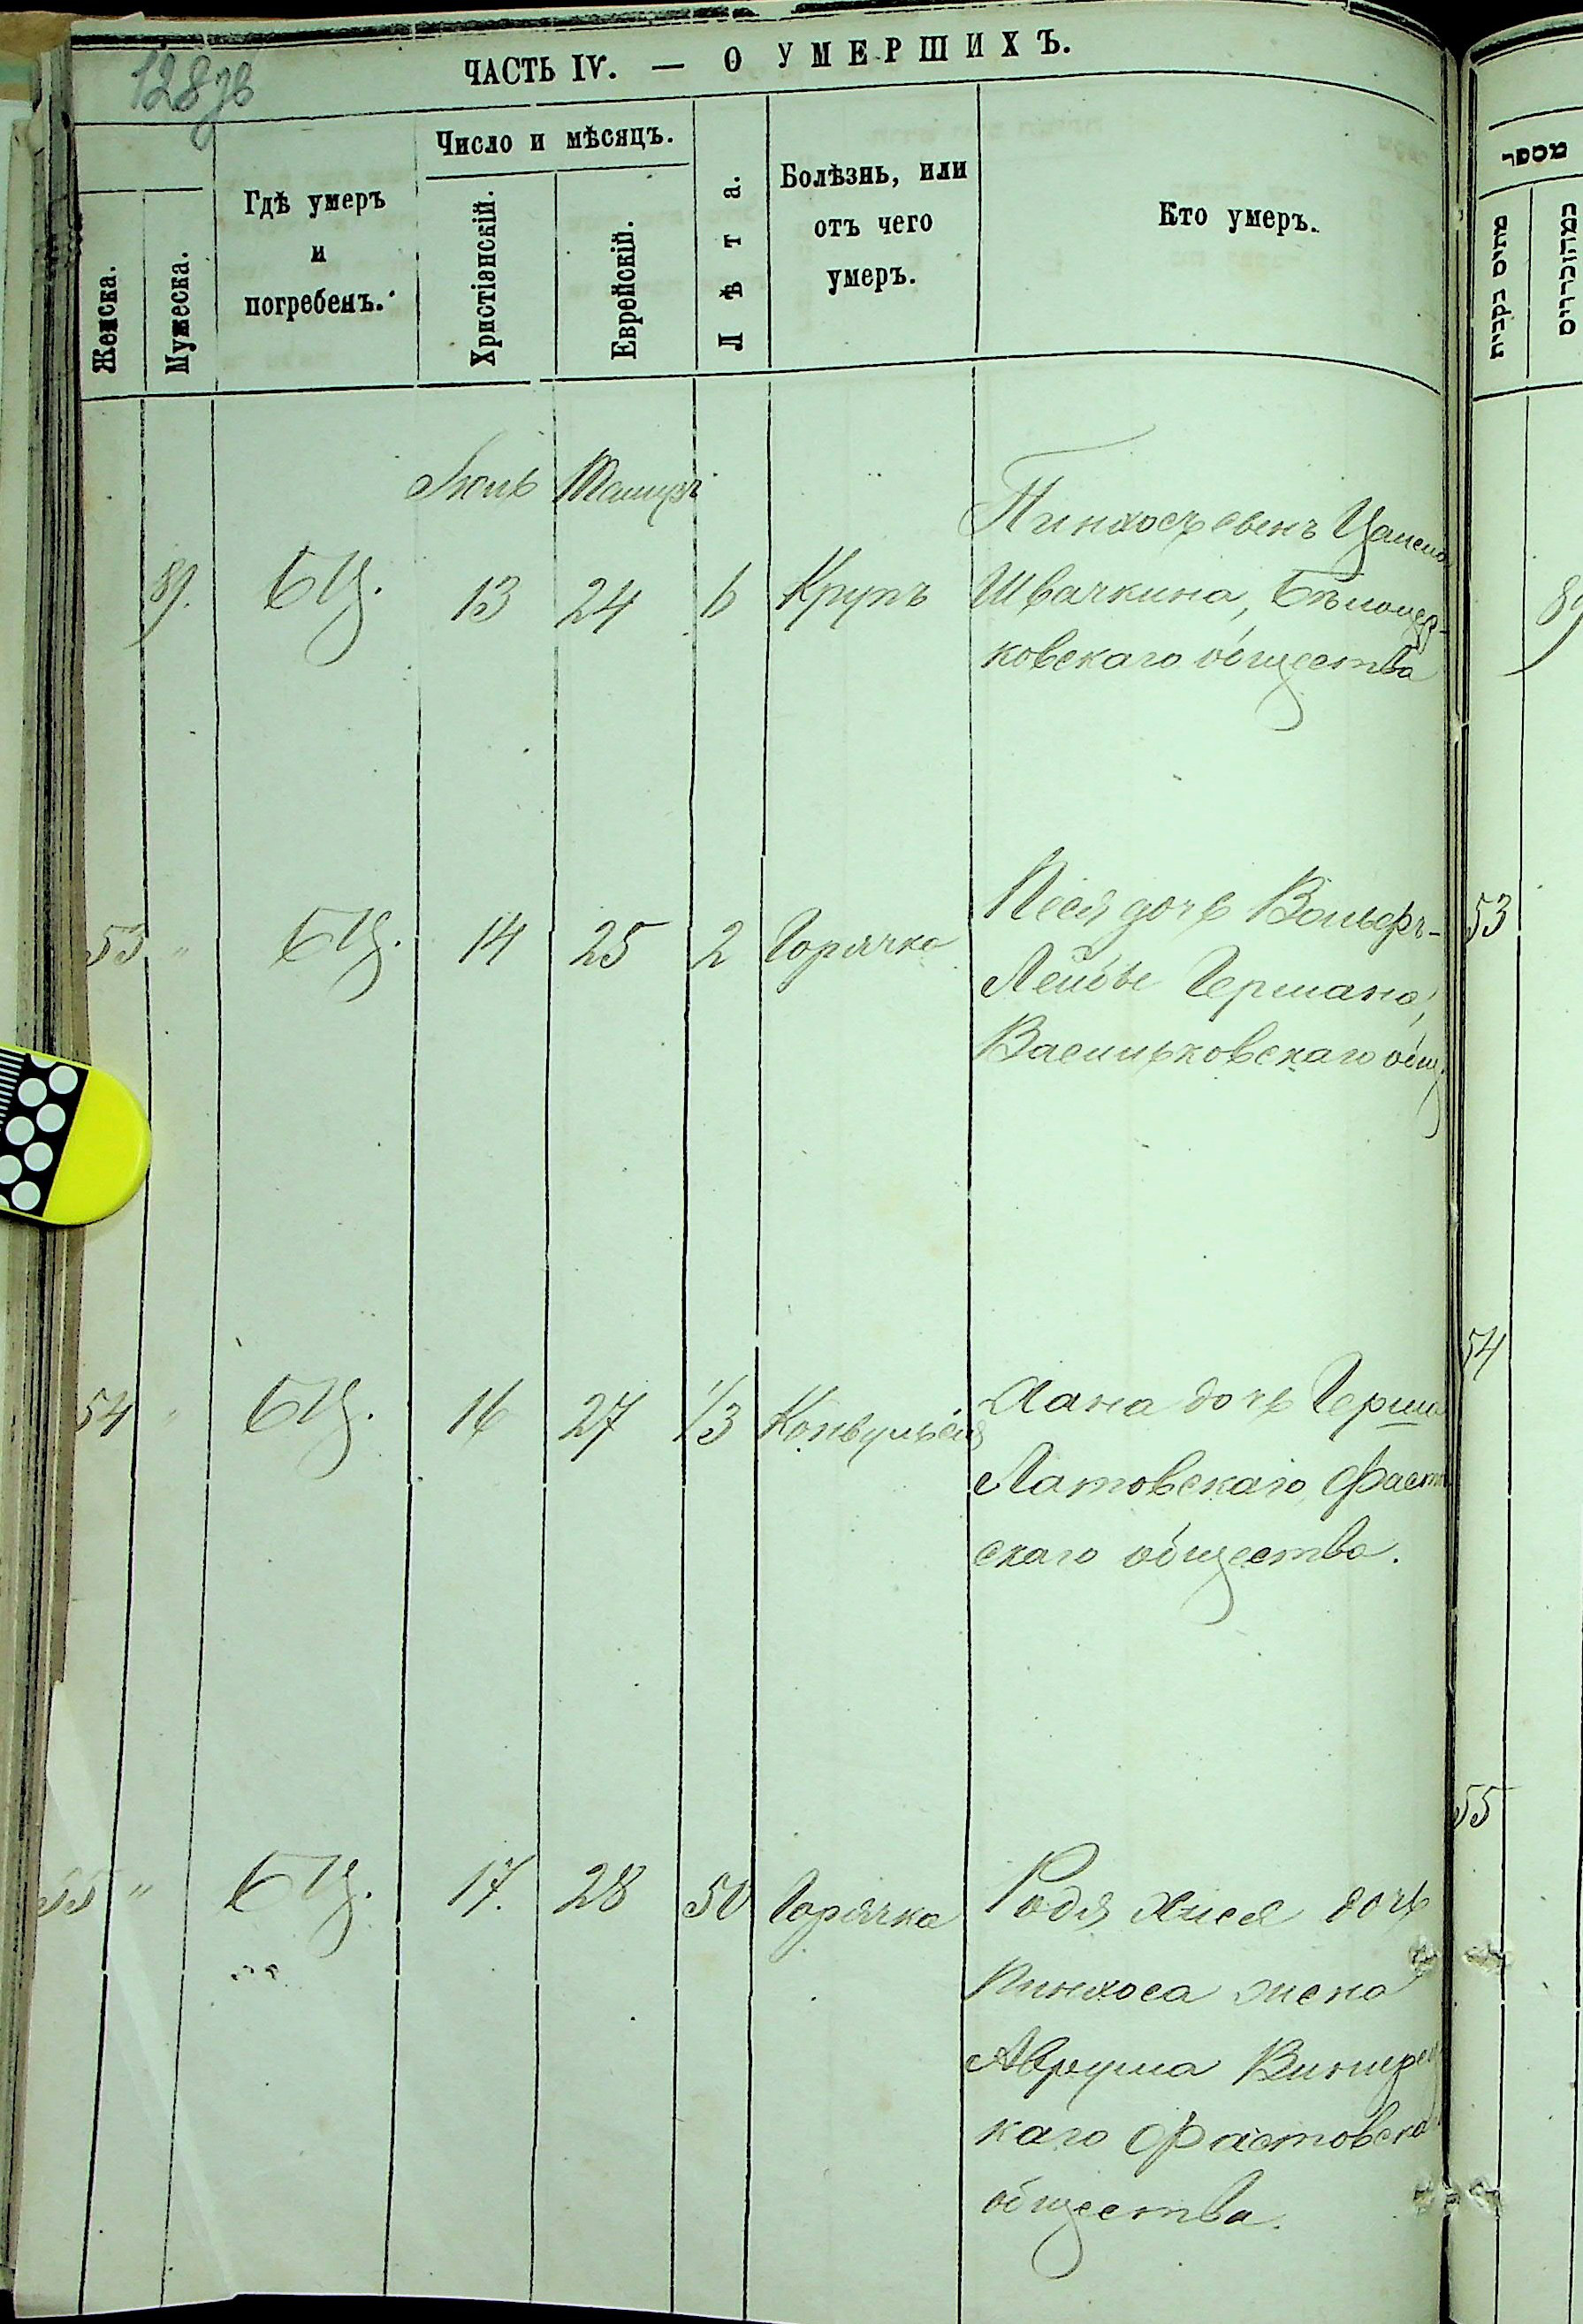 128 зв
ЧАСТЬ IV. — О УМЕРШИХЪ.
Женска.
Мужеска.
Гдѣ умеръ
и
погребенъ.
Число и мѣсяцъ.
Христіянскій.
Еврейскій.
Лѣта.
Болѣзнь, или
отъ чего
умеръ.
Кто умеръ.
מספר
מתים נקבות
Іюль Тамузъ
89. БЦ. 13 24 6 Крупъ
Пинхосъ сынъ
Швачкина, Бѣлоцер-
ковскаго общества
89
53 " БЦ. 14 25 2 Горячка
Песя дочь Вольфъ-
Лейбы Германа,
Васильковскаго общ.
53
54 " БЦ. 16 27 1/3 Конвульсія
Хана дочь Герша
Латовскаго, Фаст
скаго общества.
54
55 " БЦ. 17. 28 50 Горячка
Родя Хися дочь
Пинхоса жена
Аврума Виницъ
каго Фастовска
общества.
55